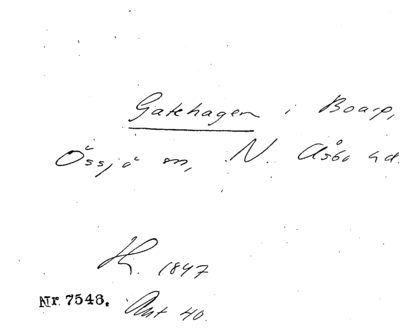 Gatehagen i Boarp,
Össjö sn, N. Åsbo hd.
H. 1847
Nr. 7548. Ant 40.